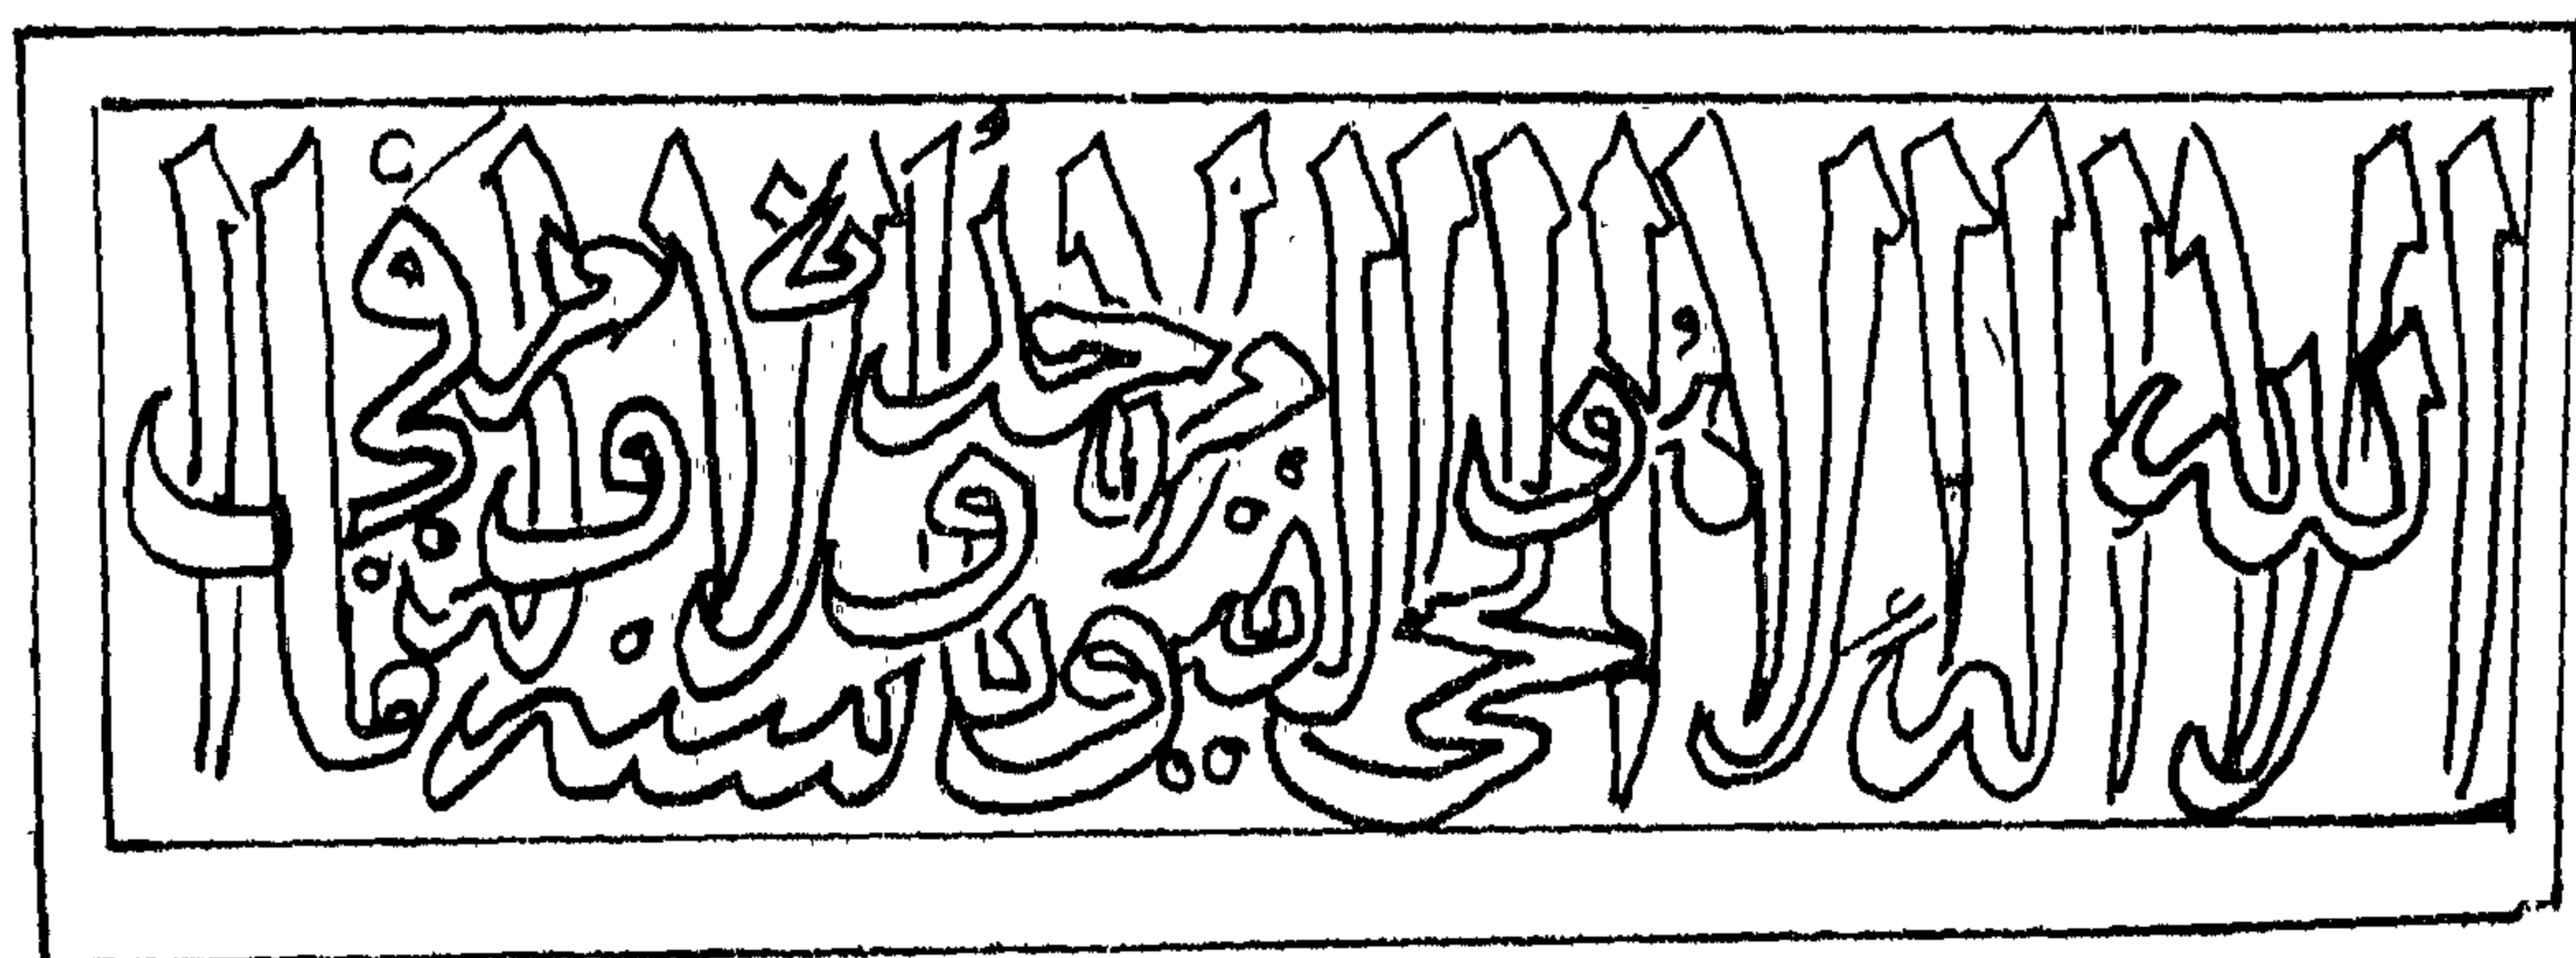 الله لا اله الا هو الحي القيوم لا تاخذه سنة ولا نوم